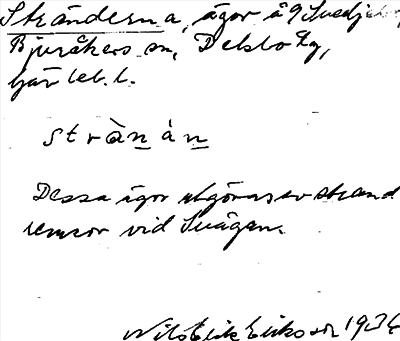 Stränderna, ägor å 9 Svedja
Bjuråkers sn, Delsbo tg,
Gävleb. l.
strànán
Dessa ägor utgöras av strand
remsor vid Svågan.
Nils Erik Eriksson 1934